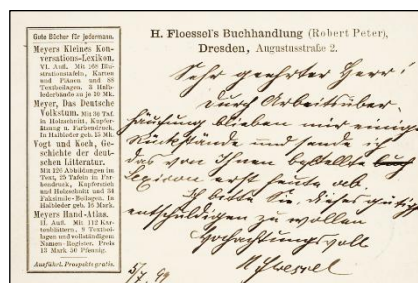 Gute Bücher für jedermann.
Meyers Kleines Kon-
versations-Lexikon.
VI. Aufl. Mit 168 Illu-
strationstafeln, Karten
und Plänen und 88
Textbeilagen. 3 Halb-
lederbände zu je 10 Mk.
Meyer, Das Deutsche
Volkstum. Mit 30 Taf.
in Holzschnitt, Kupfer-
ätzung u. Farbendruck.
In Halbleder geb. 15 Mk.
Vogt und Koch, Ge-
schichte der deut-
schen Litteratur.
Mit 126 Abbildungen im
Text, 25 Tafeln in Far-
bendruck, Kupferstich
und Holzschnitt und 34
Faksimile-Beilagen. In
Halbleder geb. 16 Mark.
Meyers Hand-Atlas.
II. Aufl. Mit 112 Karten-
blättern, 9 Textbei-
lagen und vollständigem
Namen-Register. Preis
13 Mark 50 Pfennig.
Ausführl. Prospekte gratis.
H. Floessel's Buchhandlung (Robert Peter),
Dresden, Augustusstraße 2.
Sehr geehrter Herr!
Durch Arbeitsüber-
häufung blieben mir einige
Rückstände und sende ich
das von Ihnen bestellte buch
Lexicon erst heute ab
Ich bitte Sie, dieses gütigst
entschuldigen zu wollen
Hochachtungsvoll
H Floessel
5/7. 99